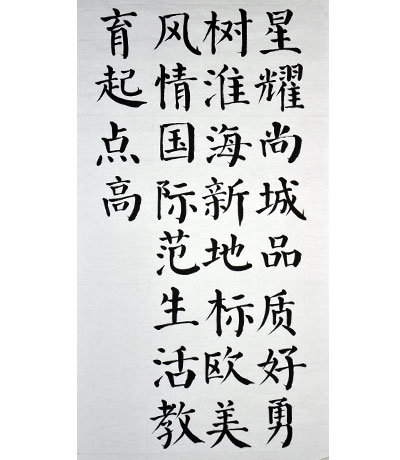 星耀尚城品质好勇
树淮海新地标欧美
风情国际范生活教
育起点高